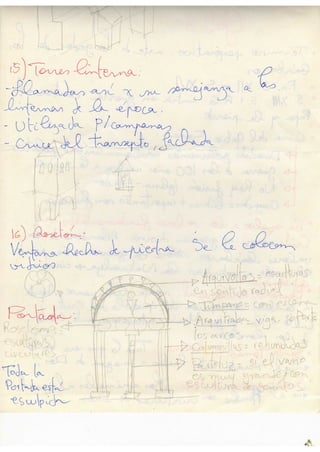 15) Torres linterna:
- Llamadas así x su semejanza a las
linternas de la época.
- Utilizada p/campanas
- Cruce del transepto, fachada
16) Rosetón:
Ventana hecha de piedra Se le colocan
vidrios
Portada:
Toda la
Portada está
esculpida
Arquivoltas = esculturas
en sentido radial
Tímpano = con escen
Arquitrabe = viga soporta
los arcos
Columnillas = redundicas
Parteluz = si el vano
es muy grande con
escultura de santos